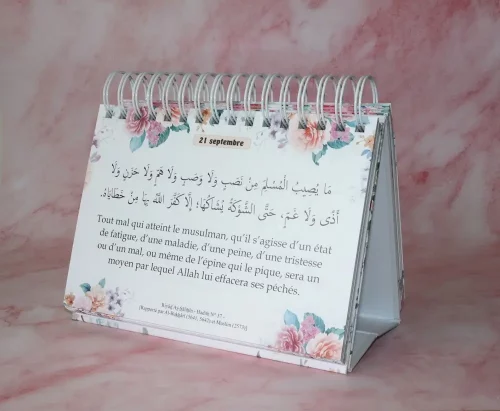 21 septembre
مَا يُصِيبُ الْمُسْلِمَ مِنْ نَصَبٍ وَلَا وَصَبٍ وَلَا هَمٍّ وَلَا حَزَنٍ وَلَا
أَذًى وَلَا غَمٍّ، حَتَّى الشَّوْكَةُ يُشَاكُهَا؛ إِلَّا كَفَّرَ اللَّهُ بِهَا مِنْ خَطَايَاهُ.
Tout mal qui atteint le musulman, qu'il s'agisse d'un état
de fatigue, d'une maladie, d'une peine, d'une tristesse
ou d'un mal, ou même de l'épine qui le pique, sera un
moyen par lequel Allah lui effacera ses péchés.
Riyâd As-Sâlihîn - Hadith N° 37 -
(Rapporté par Al-Bukhârî (5641, 5642) et Muslim (2573))